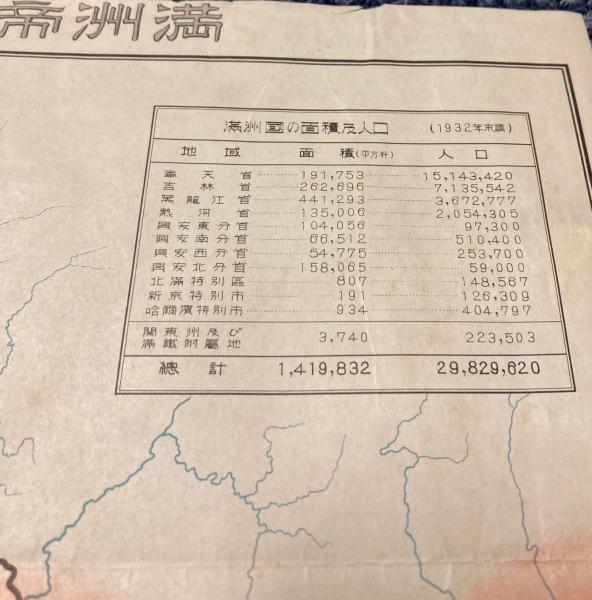 満洲帝
滿洲國の面積及人口 (1932年末調)
地域 面積(平方粁) 人口
奉天省 191,753 15,143,420
吉林省 262,696 7,135,542
黑龍江省 441,293 3,672,777
熱河省 135,006 2,054,305
興安東分省 104,056 97,300
興安南分省 66,512 510,400
興安西分省 54,775 253,700
興安北分省 158,065 59,000
北滿特別區 807 148,567
新京特別市 191 126,309
哈爾濱特別市 934 404,797
關東州及び
滿鐵附屬地 3,740 223,503
總計 1,419,832 29,829,620